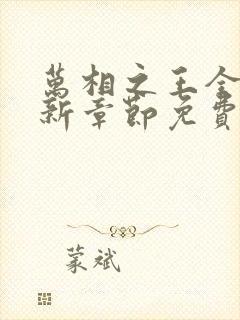 萬相之王全
新章節免費
蒙斌